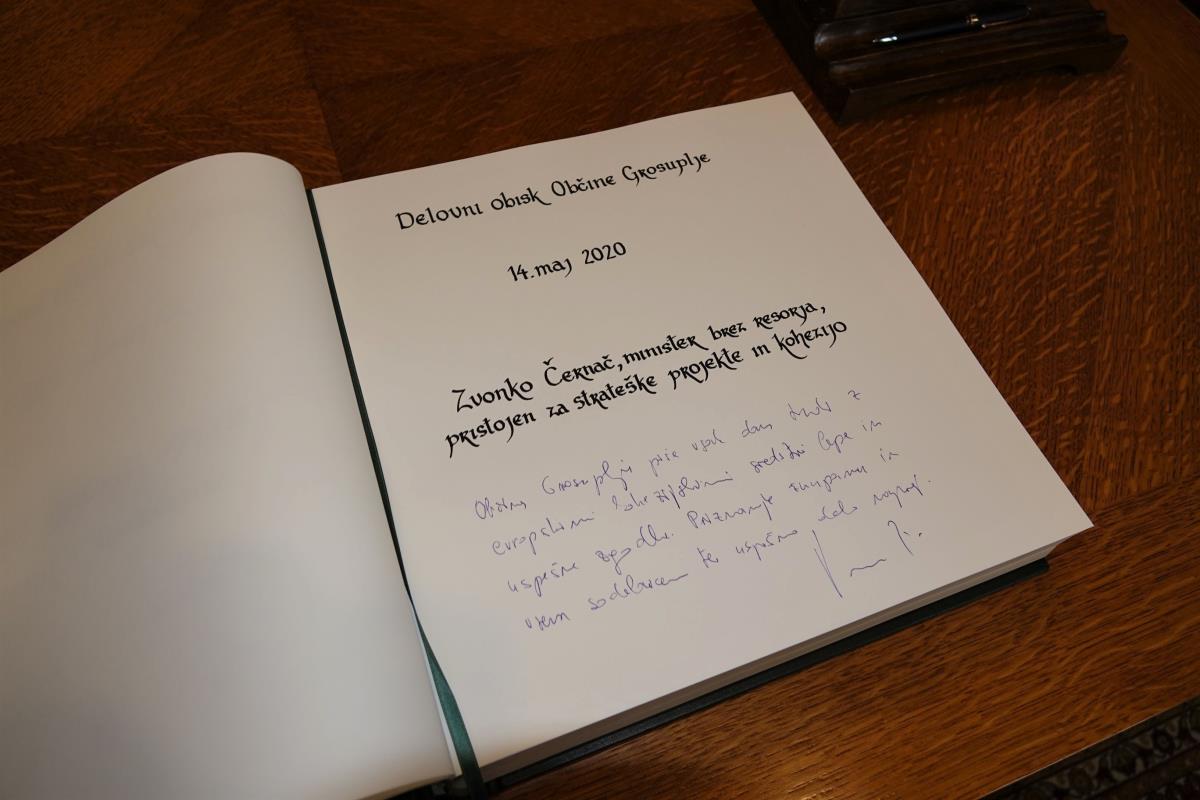 Delovni obisk Občine Grosuplje
14. maj 2020
Zvonko Černač, minister brez resorja,
pristojen za strateške projekte in kohezijo
Občina Grosuplje piše vsak dan tudi z
evropskimi kohezijskimi sredstvi lepe in
uspešne zgodbe. Priznanje županu in
vsem sodelavcem ter uspešno delo naprej.